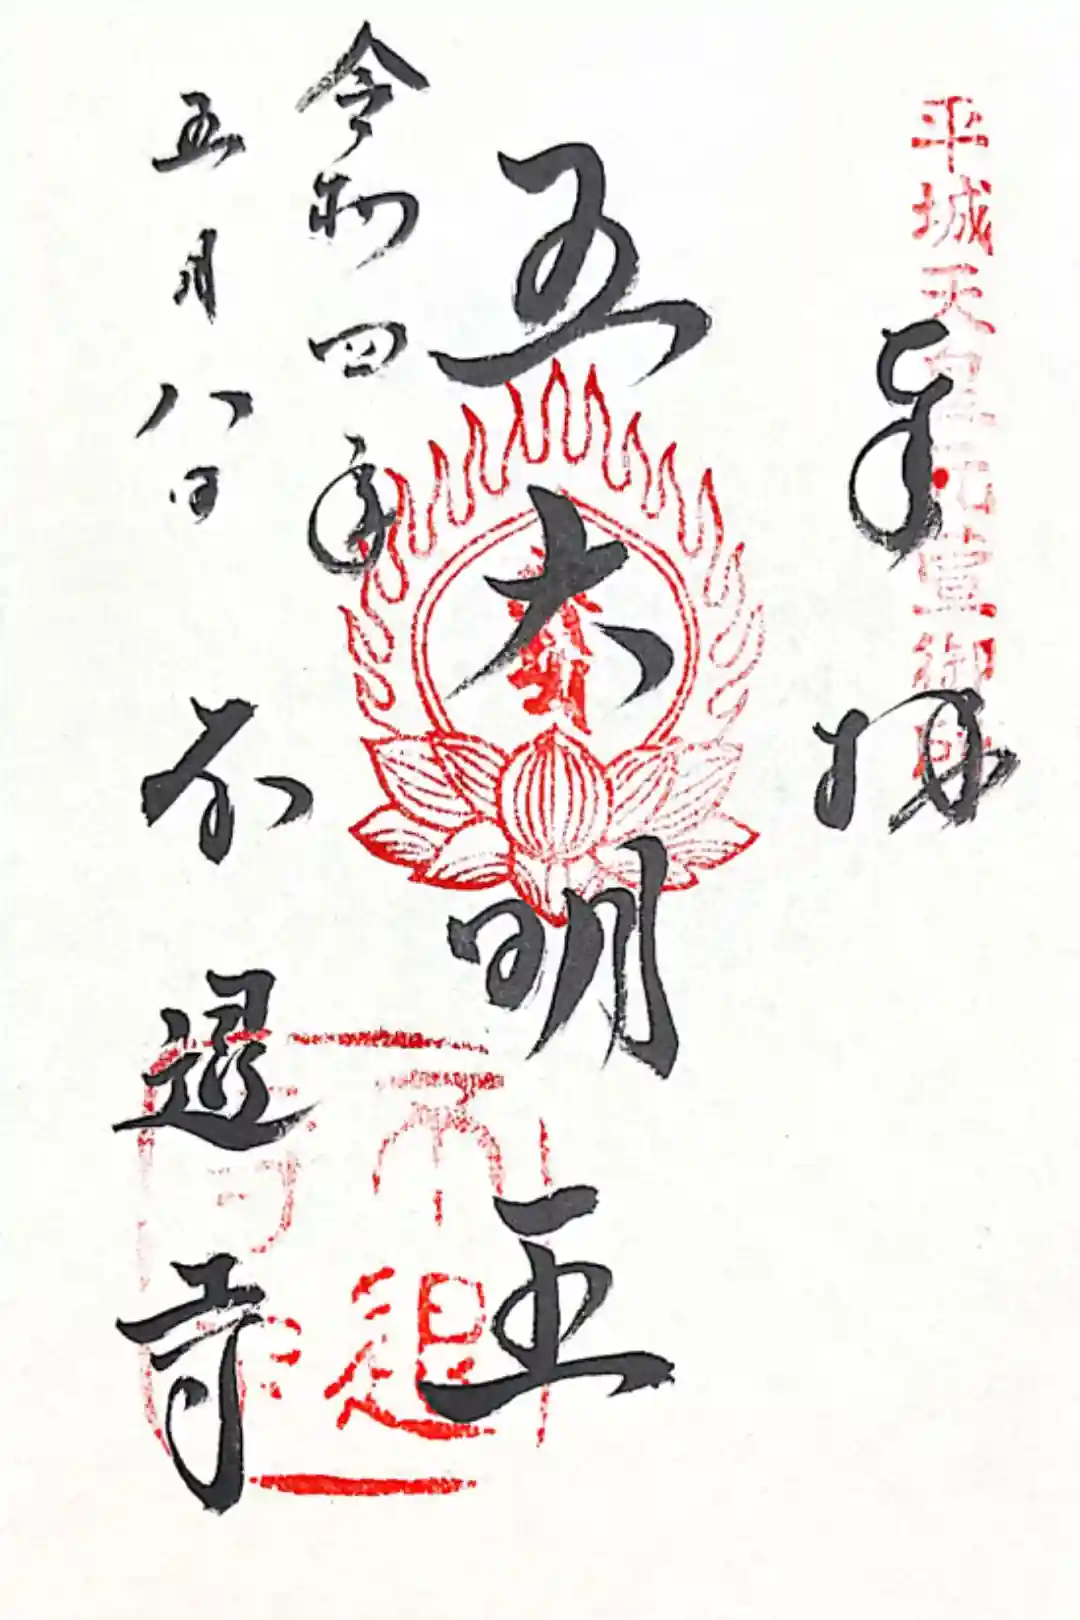 平城天皇元萱御所
奉拝
五大明王
令和四年
五月八日
不退寺